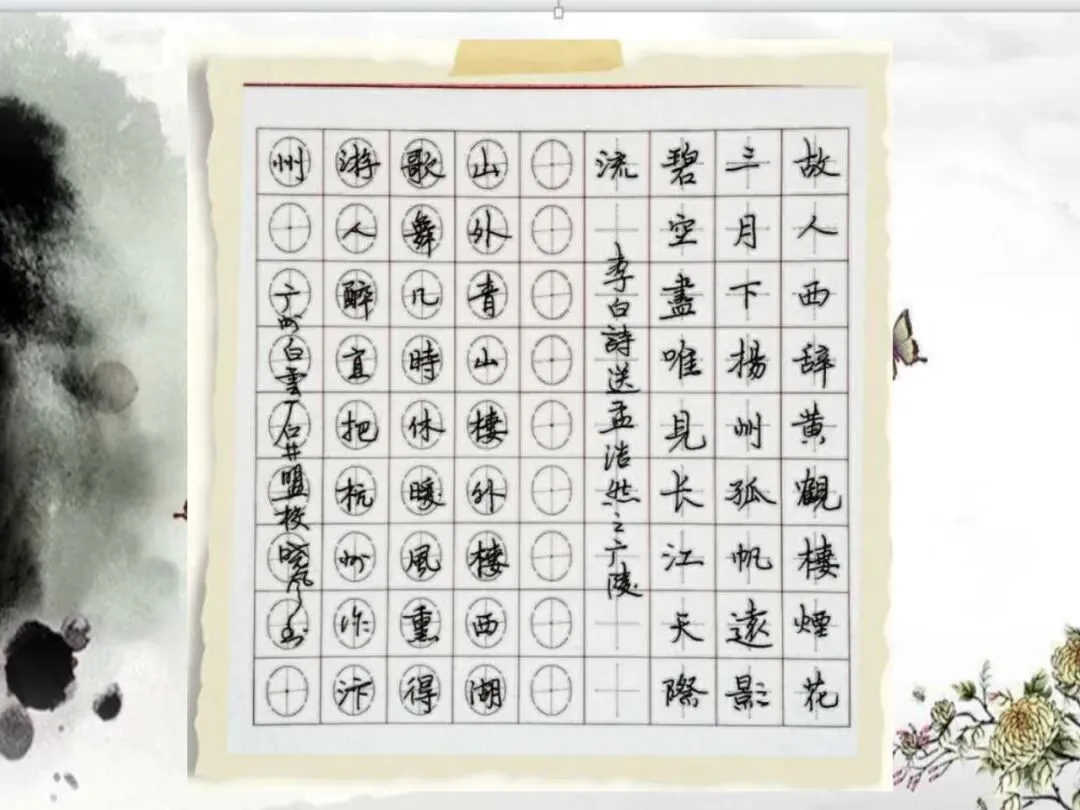 故人西辞黄觀樓煙花
三月下揚州孤帆遠影
碧空盡唯見长江天際
流 李白詩送孟浩然之广陵
山外青山樓外樓西湖
歌舞几時休暖風熏得
游人醉直把杭州作汴
州 广州白雲石井盟校晓风书